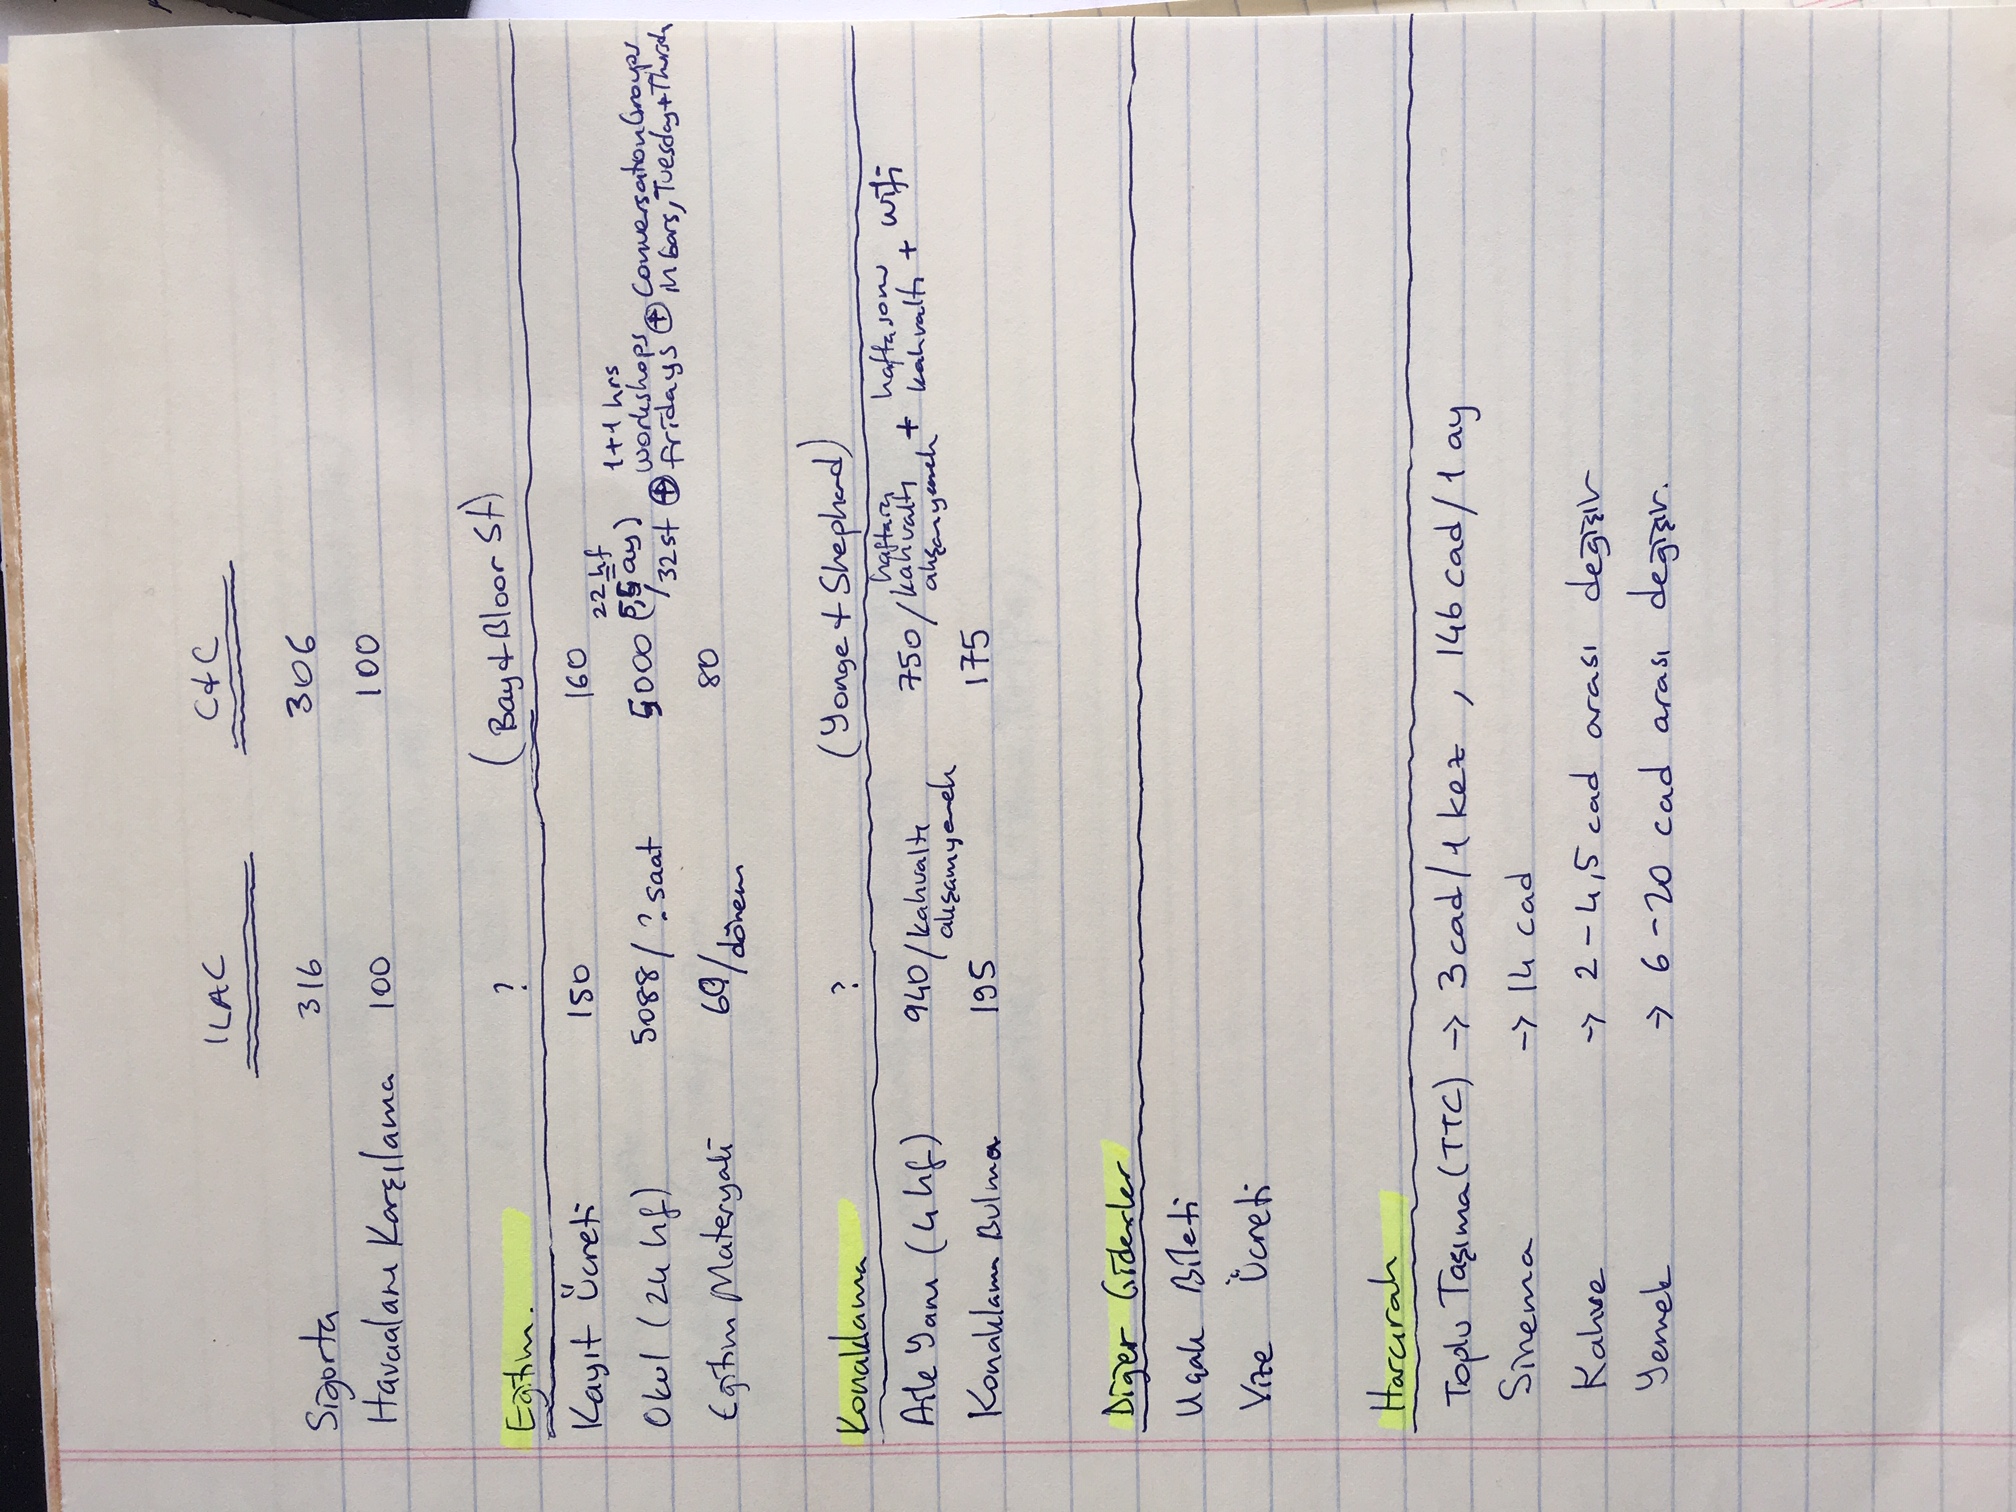 ILAC C&C
Sigorta 316 306
Havaalanı Karşılama 100 100
Eğitim. ? (Bay & Bloor St)
Kayıt Ücreti 150 160
22 hf
Okul (24 hf) 5088/? saat 5000 (5,5 ay) /32 st ⊕ 1+1 hrs workshops fridays ⊕ Conversation Groups in bars, Tuesday + Thursd
Eğitim Materyali 60/dönem 80
Konaklama ? (Yonge & Shephard)
Aile Yanı (4 hf) 940/kahvaltı akşamyemek 750/haftaiçi kahvaltı akşamyemek + haftasonu kahvaltı + wifi
Konaklama Bulma 195 175
Diğer Giderler
Uçak Bileti
Vize Ücreti
Harcırah
Toplu Taşıma (TTC) → 3 cad/1 kez , 146 cad/1 ay
Sinema → 14 cad
Kahve → 2-4,5 cad arası değişir
Yemek → 6-20 cad arası değişir.